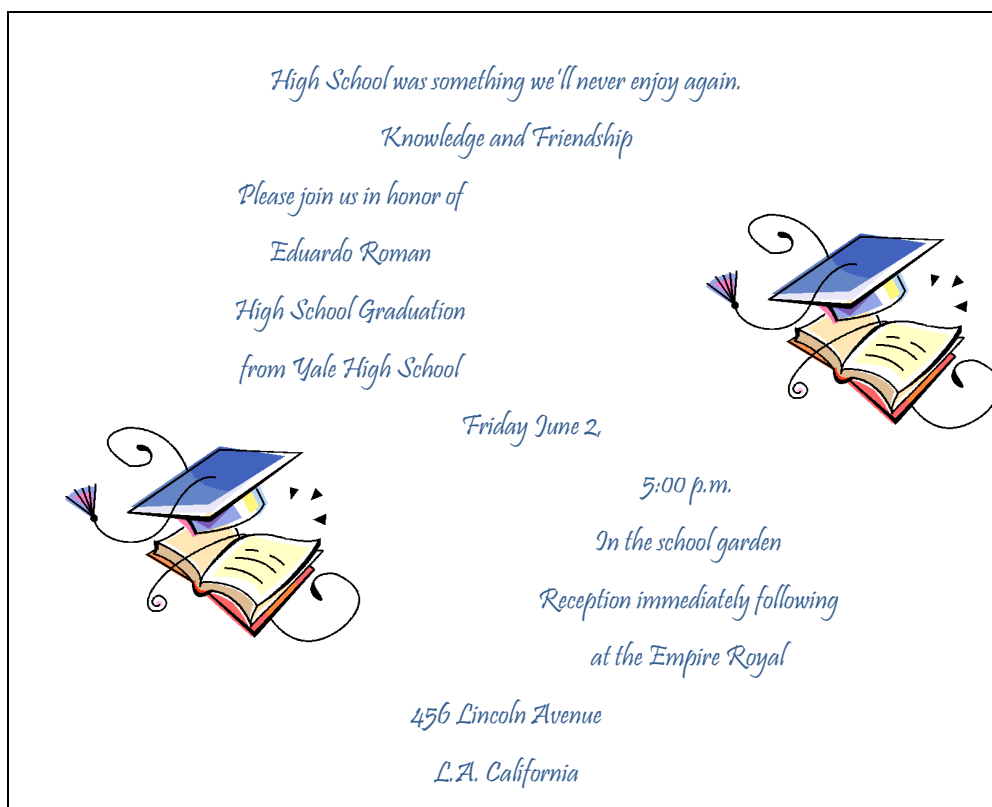 High School was something we'll never enjoy again.
Knowledge and Friendship
Please join us in honor of
Eduardo Roman
High School Graduation
from Yale High School
Friday June 2,
5:00 p.m.
In the school garden
Reception immediately following
at the Empire Royal
456 Lincoln Avenue
L.A. California